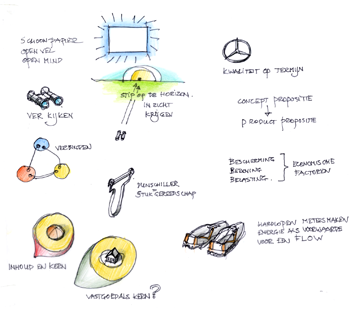 SCHOON PAPIER
OPEN VEL
OPEN MIND
STIP OP DE HORIZON
IN ZICHT
KRIJGEN
KWALITEIT OP TERMIJN
VER KIJKEN
CONCEPT PROPOSITIE
PRODUCT PROPOSITIE
VERBINDEN
BESCHERMING
BELONING
BELASTING.
ECONOMISCHE
FACTOREN
DUNSCHILLER
STUK GEREEDSCHAP
HARDLOPEN METERS MAKEN
ENERGIE ALS VOORWAARDE
VOOR EEN FLOW
INHOUD EN KERN
VASTGOED ALS KERN?